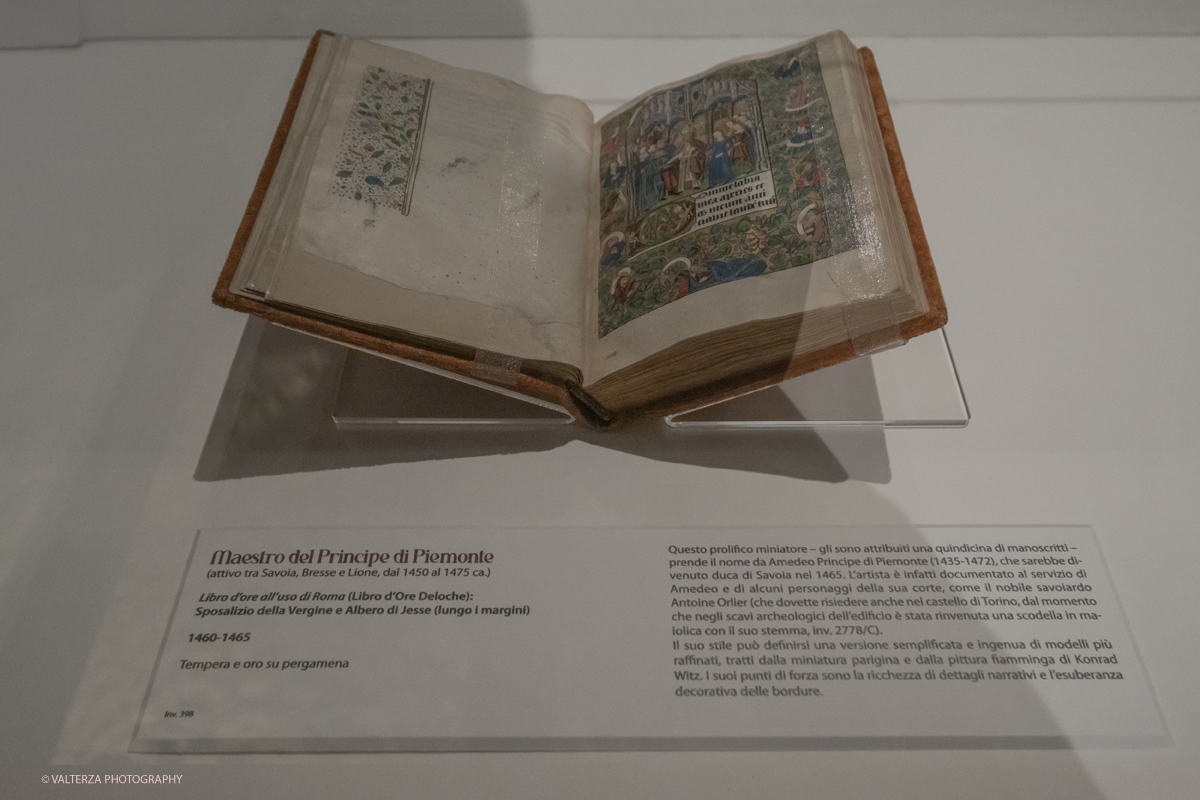 Domine labia
mea aperies et
os meum anū
Maestro del Principe di Piemonte
(attivo tra Savoia, Bresse e Lione, dal 1450 al 1475 ca.)
Libro d'ore all'uso di Roma (Libro d'Ore Deloche):
Sposalizio della Vergine e Albero di Jesse (lungo i margini)
1460-1465
Tempera e oro su pergamena
Inv. 398
Questo prolifico miniatore – gli sono attribuiti una quindicina di manoscritti –
prende il nome da Amedeo Principe di Piemonte (1435-1472), che sarebbe di-
venuto duca di Savoia nel 1465. L'artista è infatti documentato al servizio di
Amedeo e di alcuni personaggi della sua corte, come il nobile savoiardo
Antoine Orlier (che dovette risiedere anche nel castello di Torino, dal momento
che negli scavi archeologici dell'edificio è stata rinvenuta una scodella in ma-
iolica con il suo stemma, inv. 2778/C).
Il suo stile può definirsi una versione semplificata e ingenua di modelli più
raffinati, tratti dalla miniatura parigina e dalla pittura fiamminga di Konrad
Witz. I suoi punti di forza sono la ricchezza di dettagli narrativi e l'esuberanza
decorativa delle bordure.
© VALTERZA PHOTOGRAPHY